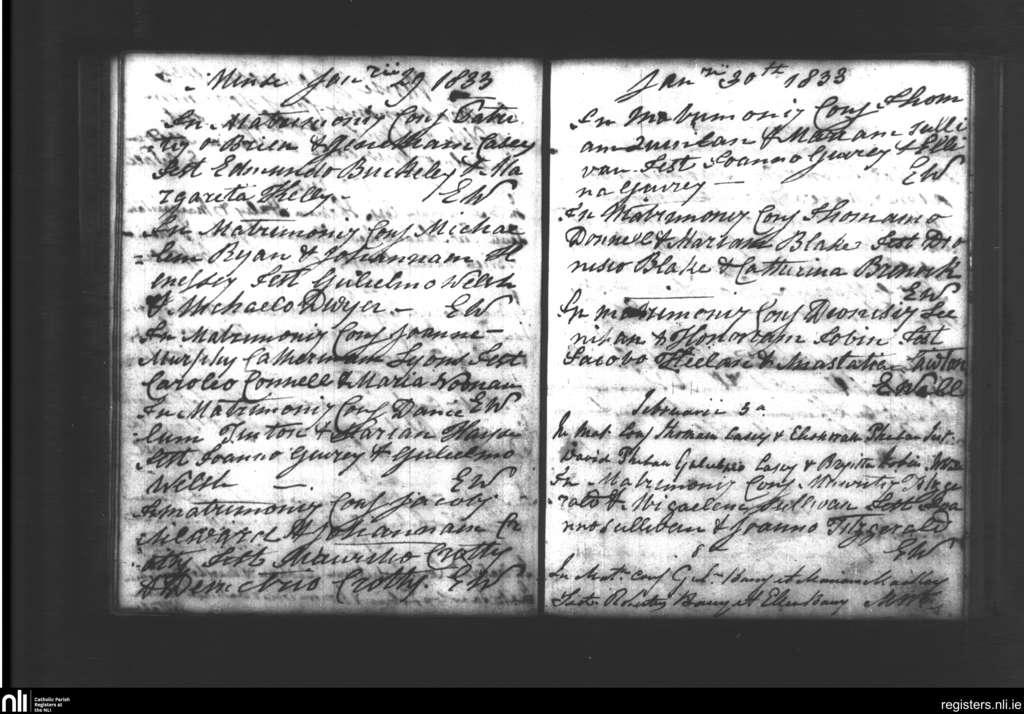 Mense Jan rii 29 1833
In Matrimoniy Conj Patri
tiy o Brien & Casey
Test Edmundo Buckeley & Ma
rgareta Thelly EW
In Matrimoniy Conj Michae
lem Ryan & Johannam H
enessey Test Gulielmo Welsh
& Michaelo Dwyer EW
In Matrimoniy Conj Joanne
Murphy Catherinam Lyons Test
Caroleo Connell & Maria Noonan
In Matrimoniy Conj Danie EW
lum Finton & Marian Hayes
Test Joanno Guvrey & Gulielmo
Welsh EW
In matrimoniy Conj Jacoby
& Johannam Cr
otty Test Mauritio Crotty
& Crotty. EW
Jan rii 30th 1833
In Matrimoniy Conj Thom
am Quinlan & Mariam Sulli
van Test Joanno Guvrey & Elle
na Guvrey EW
In Matrimoniy Conj Thomam o
Donnell & Mariam Blake Test Dio
nisio Blake & Catherina Bronock
EW
In matrimoniy Conj Dionisiy Lee
nihan & Honoriam Tobin Test
Jacobo Thelan & Anastatia Lawton
E Wall
Februarii 3a
In Mat. Conj Thomam Casey & Phelan Test.
David Phelan Casey & Brigitta Tobin
In Matrimoniy Conj Mauritiy Fitzge
rald & Sullivan Test Joa
nno Sullivan & Joanno Fitzgerald
EW
8
In Mat. Conj Barry et Mariam Mackey
Test Robertus Barry et Ellen Barry
nli
Catholic Parish
Registers at
the NLI
registers.nli.ie